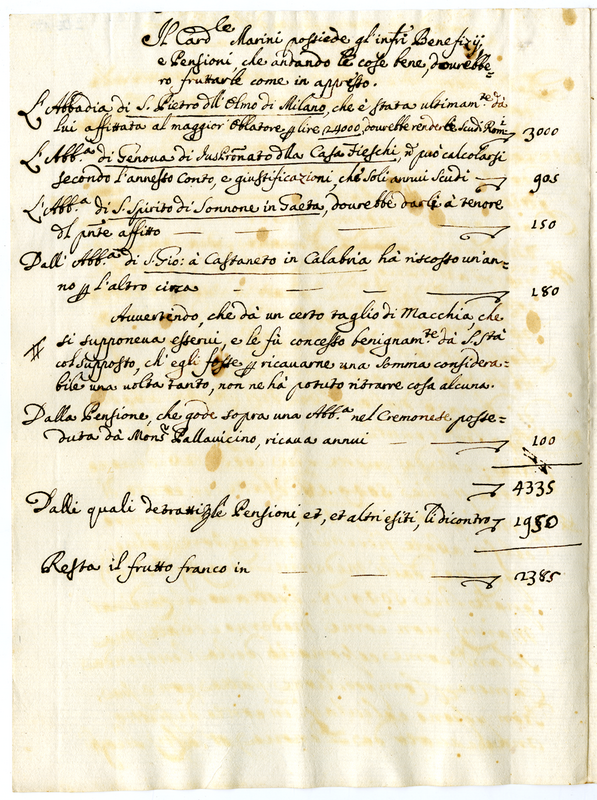 Il Card.le Marini possiede gl'infri Benefizij,
e Pensioni, che andando le cose bene, dourebbe=
ro fruttarle come in appresto.
L'Abbadia di S. Pietro dll'Olmo di Milano, che è stata ultimam.te dà
lui affittata al maggior Oblatore p lire 24000, dourebbe renderle Scudi Rom.i 3000
L'Abb.a di Genova di Juspronato dlla Casa Fieschi, può calcolarsi
secondo l'annesso Conto, e giustificazioni, che soli annui Scudi 905
L'Abb.a di S. Spirito di Sonnone in Gaeta, dourebbe darli à tenore
dl pnte affitto 150
Dall'Abb.a di S. Gio: à Castaneto in Calabria hà riscosso un'an=
no p l'altro circa 180
Auuertendo, che dà un certo taglio di Macchia, che
si supponeua esserui, e le fù concesso benignam.te dà S. Stà
col supposto, ch'egli fosse p ricauarne una somma considera=
bile una uolta tanto, non ne hà potuto ritrarre cosa alcuna.
Dalla Pensione, che gode sopra una Abb.a nel Cremonese posse=
duta dà Mons.r Pallauicino, ricaua annui 100
4335
Dalli quali detrattisi le Pensioni, et, et altri esiti, li dicontro 1950
Resta il frutto franco in 2385